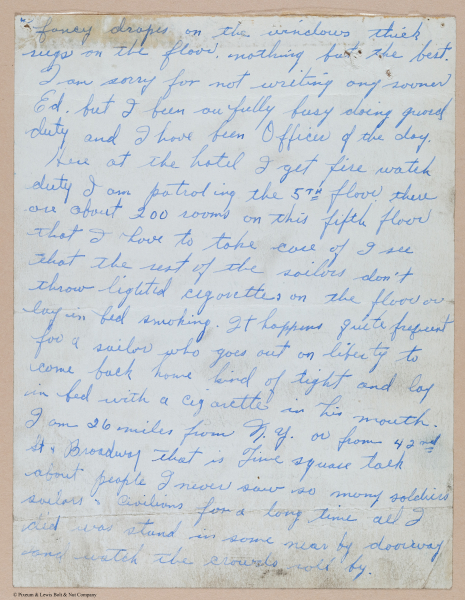 fancy drapes on the windows thick
rugs on the floor. nothing but the best.
I am sorry for not writing any sooner
Ed. but I been awfully busy doing guard
duty and I have been Officer of the day.
Here at the hotel I get fire watch
duty I am patroling the 5TH floor there
are about 200 rooms on this fifth floor
that I have to take care of I see
that the rest of the sailors don't
throw lighted cigarettes on the floor or
lay in bed smoking. It happens quite frequent
for a sailor who goes out on liberty to
come back home kind of tight and lay
in bed with a cigarette in his mouth.
I am 26 miles from N.Y. or from 42nd
St & Broadway that is Time square talk
about people I never saw so many soldiers
sailors & civilians for a long time all I
did was stand in some near by doorway
and watch the crowds roll by.
© Pranom & Lewis Bolt & Nut Company